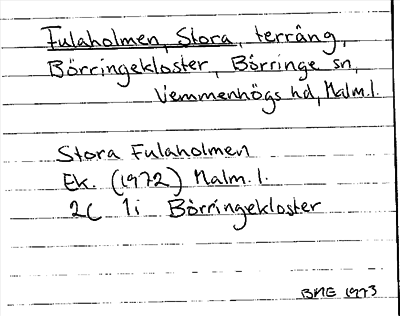 Fulaholmen, Stora, terräng,
Börringekloster, Börringe sn,
Vemmenhögs hd, Malm.l.
Stora Fulaholmen
Ek. (1972) Malm. l.
2C 1i Börringekloster
BME 1973